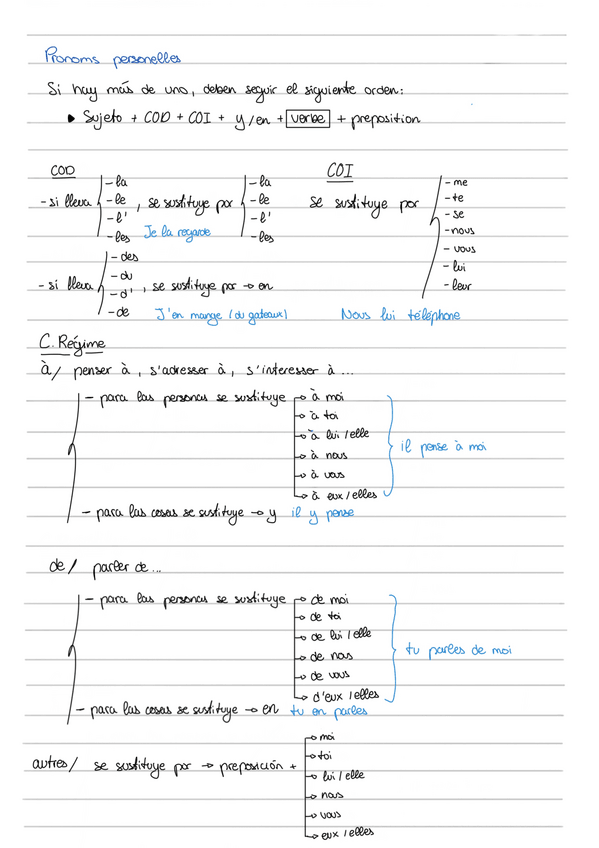 Pronoms personelles
Si hay más de uno, deben seguir el siguiente orden:
▸ Sujeto + COD + COI + y/en + verbe + preposition
COD
- si lleva
- la
- le
- l'
- les
, se sustituye por
- la
- le
- l'
- les
Je la regarde
- si lleva
- des
- du
- d'
- de
, se sustituye por → en
J'en mange (du gateaux)
COI
se sustituye por
- me
- te
- se
- nous
- vous
- lui
- leur
Nous lui téléphone
C. Régime
à/ penser à, s'adresser à, s'interesser à ...
- para las personas se sustituye
→ à moi
→ à toi
→ à lui / elle
→ à nous
→ à vous
→ à eux / elles
il pense à moi
- para las cosas se sustituye → y il y pense
de / parler de ...
- para las personas se sustituye
→ de moi
→ de toi
→ de lui / elle
→ de nous
→ de vous
→ d'eux / elles
tu parles de moi
- para las cosas se sustituye → en tu en parles
autres/ se sustituye por → preposición +
→ moi
→ toi
→ lui / elle
→ nous
→ vous
→ eux / elles